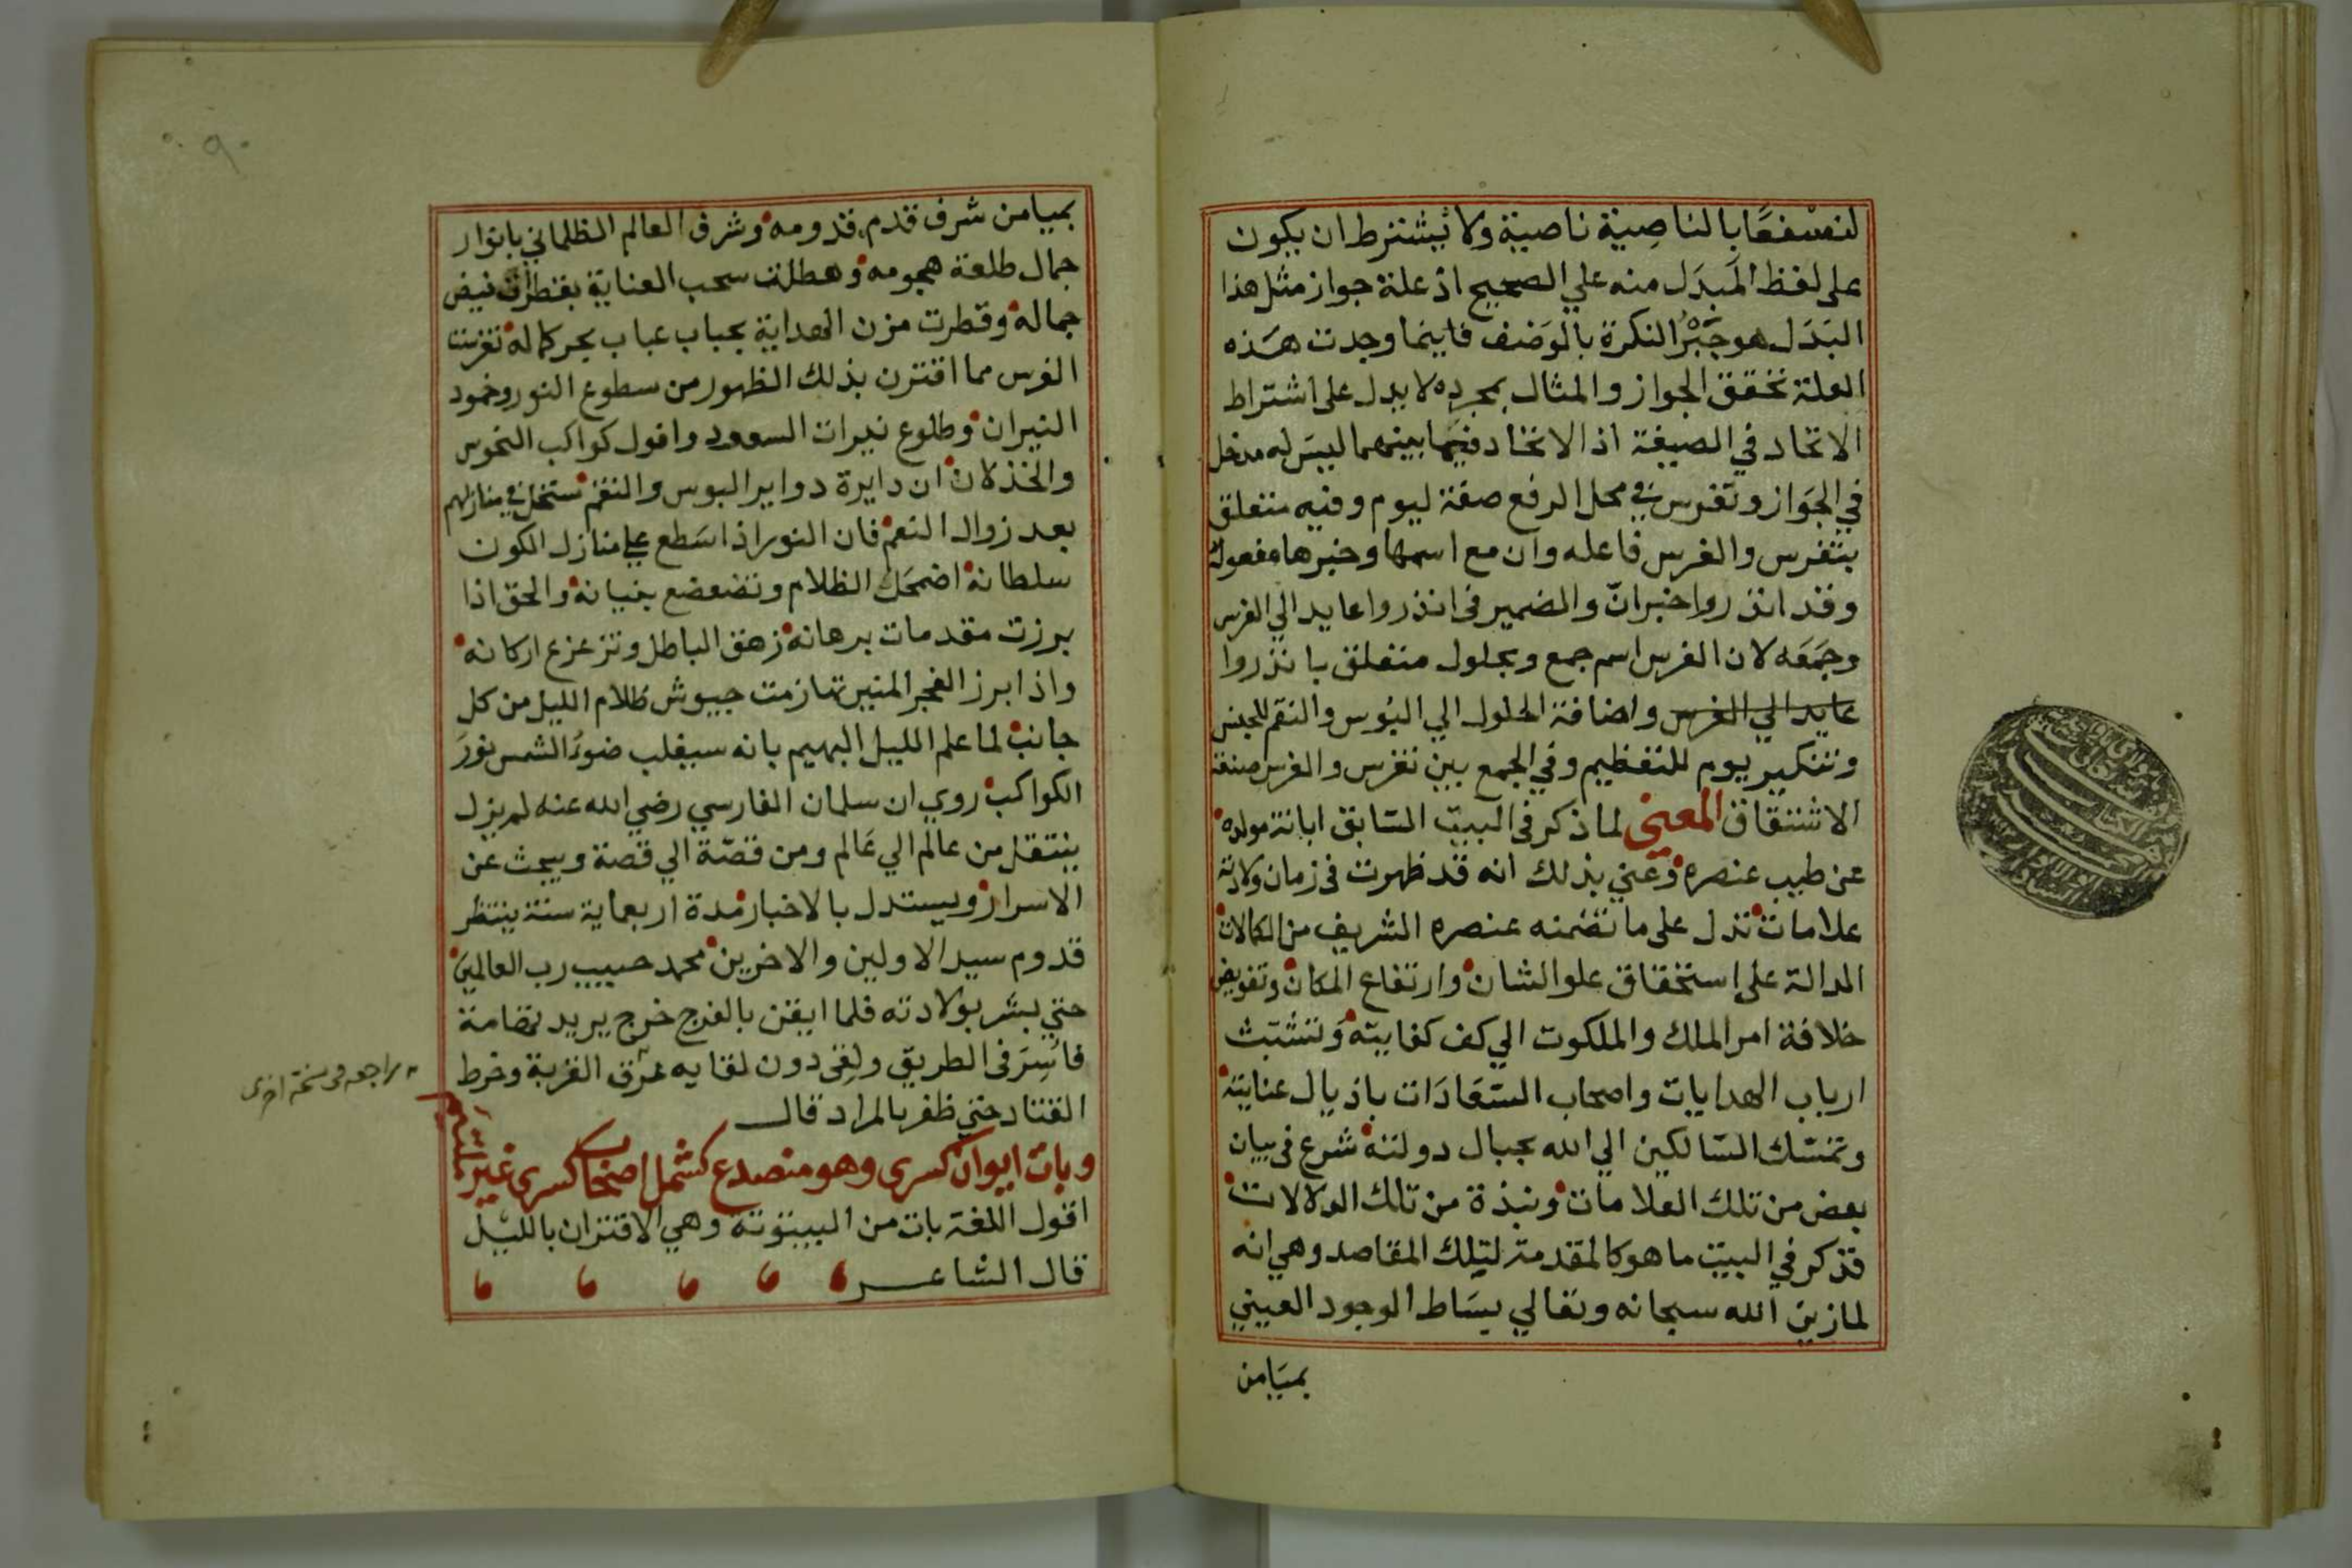 لنسْفعًا بالناصِية ناصية ولا يُشترط ان يكون
على لفظ المبدَل منه علي الصحيح اذ علة جواز مثل هذا
البَدَل هو جَبْرُ النكرة بالوَصف فاينما وجدت هَذه
العلة تحقق الجواز والمثال بمجرده لا يدل على اشتراط
الاتحاد في الصيغة اذ الاتحاد فيما بينهما ليسَ له مدخل
في الجَواز وتفرس في محل الرفع صفة ليوم وفيه متعلق
بتفرس والفرس فاعله وان مع اسمها وخبرها مفعوله
وقد انذروا خبر انّ والضمير في انذروا عايد الي الفرس
وجَمَعَه لان الفرس اسم جمع وبحلول متعلق بانذروا
عايد الي الفرس واضافة الحلول الي البُوس والنقم للجنس
وتنكير يوم للتعظيم وفي الجمع بين تفرس والفرس صنعة
الاشتقاق المعني لما ذكر في البيت السَابق ابانة مولده
عن طيب عنصره وعني بذلك انه قد ظهرت في زمان ولادته
علامات تدل على ما تضمنه عنصره الشريف من الكمالات
الدالة على إستحقاق علو الشان وارتفاع المكان وتفويض
خلافة امر الملك والملكوت الي كف كفايته وتشبث
ارباب الهدايات واصحاب السعَادَات باذيال عنايته
وتمسّك السَالكين الي الله بحبال دولته شرع في بيان
بعض من تلك العلامات ونبذة من تلك الدلالات
فذكر في البيت ما هو كالمقدمة لتلك المقاصد وهي انه
لما زين الله سبحانه وتعالي بسَاط الوجود العيني
بميَامن
بميامن شرف قدم قدومه وشرف العالم الظلماني بانوار
جمال طلعة هجومه وهطلت سحب العناية بقطرات فيض
جماله وقطرت مزن الهداية بحباب عباب بحر كماله تفرست
الفرس مما اقترن بذلك الظهور من سطوع النور وخمود
النيران وطلوع نيرات السعود وافول كواكب النحوس
والخذلان ان دايرة دواير البوس والنقم ستحل في منازلهم
بعد زوال النعم فان النور اذا سَطع علي منازل الكون
سلطانه اضمحَل الظلام وتضعضع بنيانه والحق اذا
برزت مقدمات برهانه زهق الباطل وتزعزع اركانه
واذا برز الفجر المنير تهازمت جيوش ظلام الليل من كل
جانب لما علم الليل البهيم بانه سيغلب ضوءُ الشمس نورَ
الكواكب روي ان سلمان الفارسي رضي الله عنه لم يزل
ينتقل من عالم الي عَالم ومن قصّة الي قصة ويبحث عن
الاسرار ويستدل بالاخبار مدة اربعماية سنة ينتظر
قدوم سيد الاولين والاخرين محمد حبيب رب العالمين
حتي بشر بولادته فلما ايقن بالفرج خرج يريد تهامة
فاسِرَ في الطريق ولقى دون لقايه عرق القربة وخرط
القتاد حتي ظفر بالمراد قال
وبات ايوان كسرى وهو منصدع كشمل اصحاب كسرى غير ملتئم
اقول اللغة بات من البيتوتة وهي الاقتران بالليل
قال الشاعر
يراجعه في نسخة اخرى
٩٠